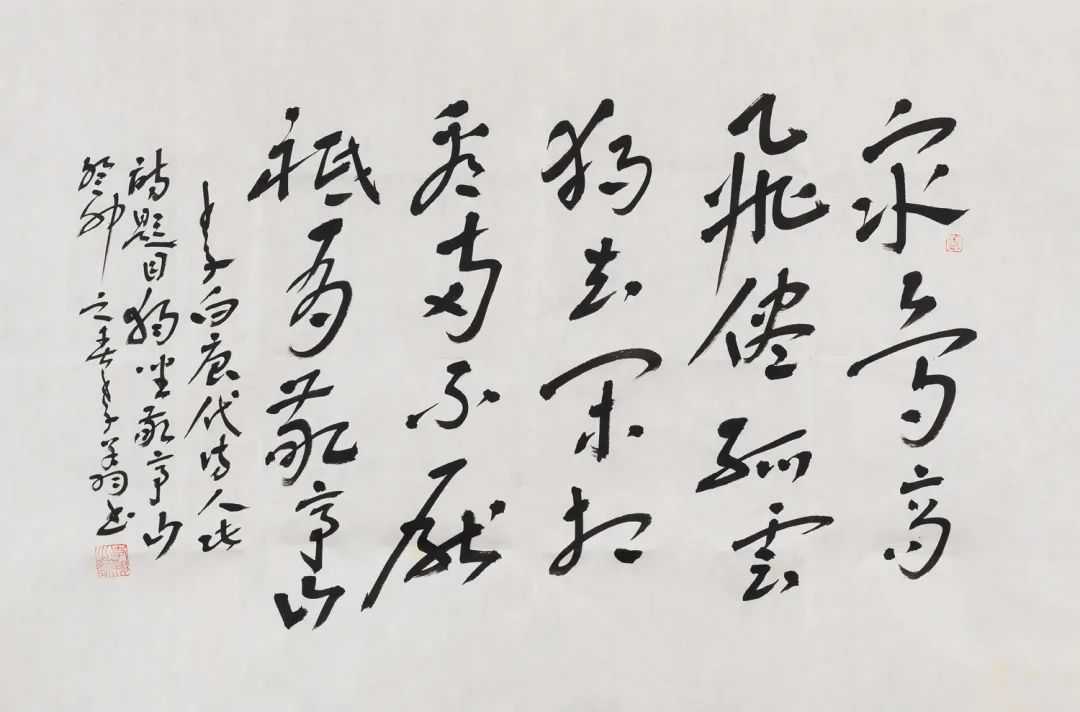 衆鳥高
飛儘孤雲
獨去閑相
看兩不厭
祗有敬亭山
李白唐代诗人此
詩題目獨坐敬亭山
癸卯之春李翁书